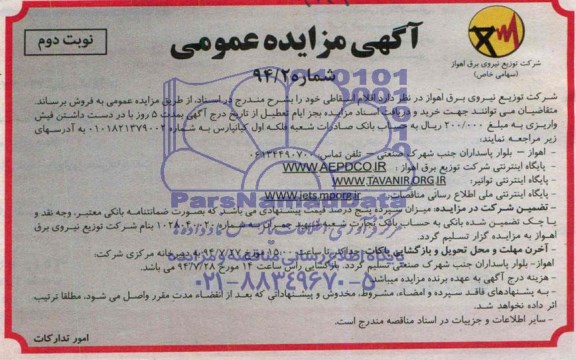 نوبت دوم
آگهی مزایده عمومی
شماره ۹۴/۲
شرکت توزیع نیروی برق اهواز
(سهامی خاص)
شرکت توزیع نیروی برق اهواز در نظر دارد اقلام اسقاطی خود را بشرح مندرج در اسناد، از طریق مزایده عمومی به فروش برساند.
متقاضیان می توانند جهت خرید و دریافت اسناد مزایده بجز ایام تعطیل از تاریخ درج آگهی بمدت ۵ روز با در دست داشتن فیش
واریزی به مبلغ ۲۰۰/۰۰۰ ریال به حساب بانک صادرات شعبه فلکه اول کیانپارس به شماره ۰۱۰۱۸۲۱۳۷۹۰۰۲ به آدرسهای
زیر مراجعه نمایند:
- اهواز - بلوار پاسداران جنب شهرک صنعتی - تلفن تماس:
پایگاه اینترنتی شرکت توزیع برق اهواز: WWW.AEPDCO.IR
پایگاه اینترنتی توانیر: WWW.TAVANIR.ORG.IR
پایگاه اینترنتی ملی اطلاع رسانی مناقصات:
- تضمین شرکت در مزایده: میزان سپرده پنج درصد قیمت پیشنهادی می باشد که بصورت ضمانتنامه بانکی معتبر، وجه نقد و
یا چک تضمین شده بانکی به حساب بانک تجارت شعبه بنام شرکت توزیع نیروی برق
اهواز به مزایده گزار تسلیم گردد.
- آخرین مهلت و محل تحویل و بازگشایی پاکات: حداکثر تا ساعت ۱۵:۰۰ مورخ ۹۴/۷/۲۷ به دبیرخانه مرکزی شرکت:
اهواز- بلوار پاسداران جنب شهرک صنعتی تسلیم گردد. بازگشایی رأس ساعت ۱۴ مورخ ۹۴/۷/۲۸ می باشد.
- هزینه درج آگهی به عهده برنده مزایده میباشد.
- به پیشنهادهای فاقد سپرده و امضاء، مشروط، مخدوش و پیشنهاداتی که بعد از انقضاء مدت مقرر واصل می شود، مطلقا ترتیب
اثر داده نخواهد شد.
- سایر اطلاعات و جزییات در اسناد مناقصه مندرج است.
امور تدارکات
ParsNamadData
پایگاه اطلاع رسانی مناقصه و مزایده
۰۲۱-۸۸۳۴۹۶۷۰-۵